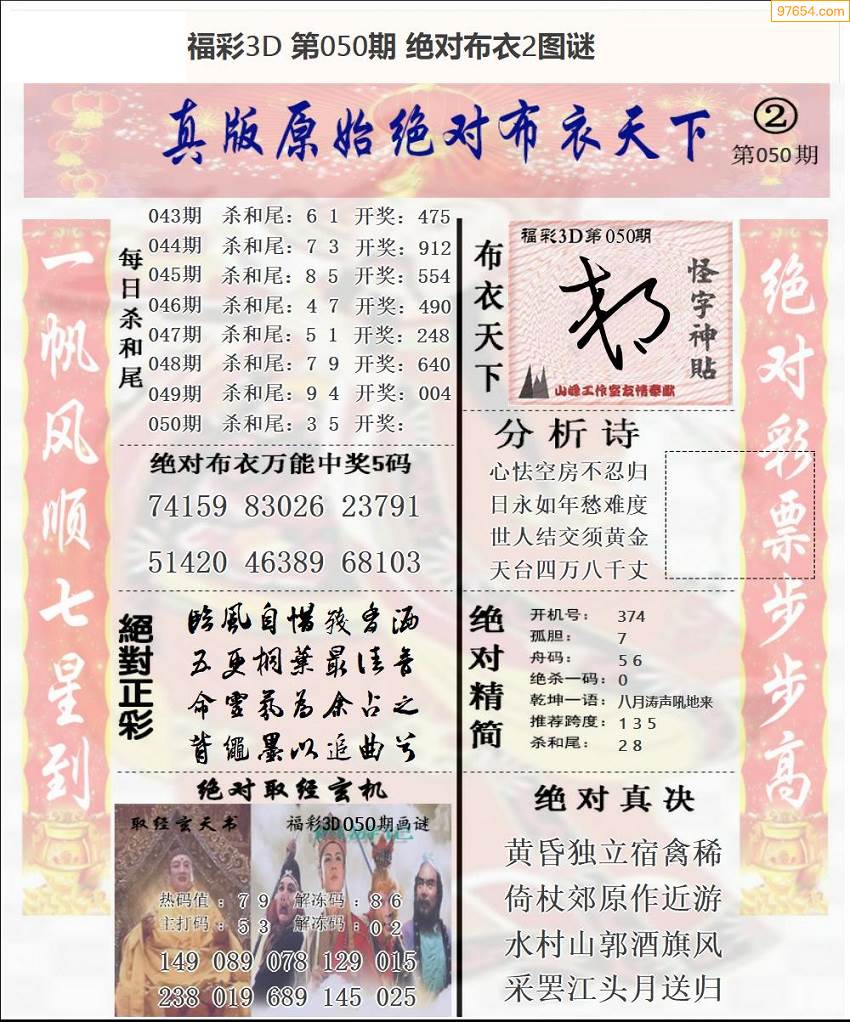 97654.com
福彩3D 第050期 绝对布衣2图谜
真版原始绝对布衣天下
②
第050期
一帆风顺七星到
每日杀和尾
043期 杀和尾: 6 1 开奖: 475
044期 杀和尾: 7 3 开奖: 912
045期 杀和尾: 8 5 开奖: 554
046期 杀和尾: 4 7 开奖: 490
047期 杀和尾: 5 1 开奖: 248
048期 杀和尾: 7 9 开奖: 640
049期 杀和尾: 9 4 开奖: 004
050期 杀和尾: 3 5 开奖:
绝对布衣万能中奖5码
74159 83026 23791
51420 46389 68103
絕對正彩
臨風自惜殘香洒
五更桐葉最佳音
命靈氛為余占之
背繩墨以追曲兮
绝对取经玄机
取经玄天书
福彩3D050期画谜
热码值: 7 9 解冻码: 8 6
主打码: 5 3 解冻码: 0 2
149 089 078 129 015
238 019 689 145 025
布衣天下
福彩3D第050期
怪字神贴
山峰工作室友情奉献
分析诗
心怯空房不忍归
日永如年愁难度
世人结交须黄金
天台四万八千丈
绝对精简
开机号: 374
孤胆: 7
舟码: 5 6
绝杀一码: 0
乾坤一语: 八月涛声吼地来
推荐跨度: 1 3 5
杀和尾: 2 8
绝对真决
黄昏独立宿禽稀
倚杖郊原作近游
水村山郭酒旗风
采罢江头月送归
绝对彩票步步高